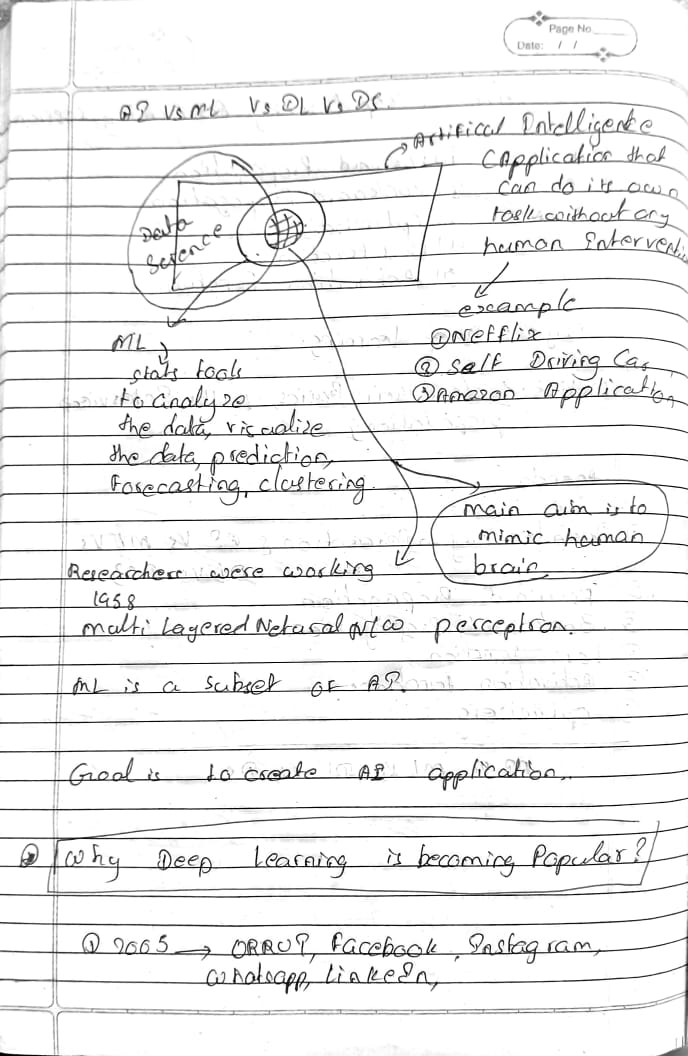 Page No.
Date: / /
AI Vs ML Vs DL Vs DS.
Artifical Intelligence
Data
Science
CApplication that
can do its own
task without any
human Interventi
example
① Netflix
② Self Driving Car
③ Amazon Application
ML
stats tools
to analyze
the data, visualize
the data, prediction,
Forecasting, clustering.
main aim is to
mimic human
brain
Researchers were working
1958
Multi Layered Netural N/w perceptron.
ML is a subset OF AI.
Goal is to create AI application.
Why Deep Learning is becoming Popular?
① 2005 → ORRUT, Facebook, Instagram,
Whatsapp, LinkeIn,